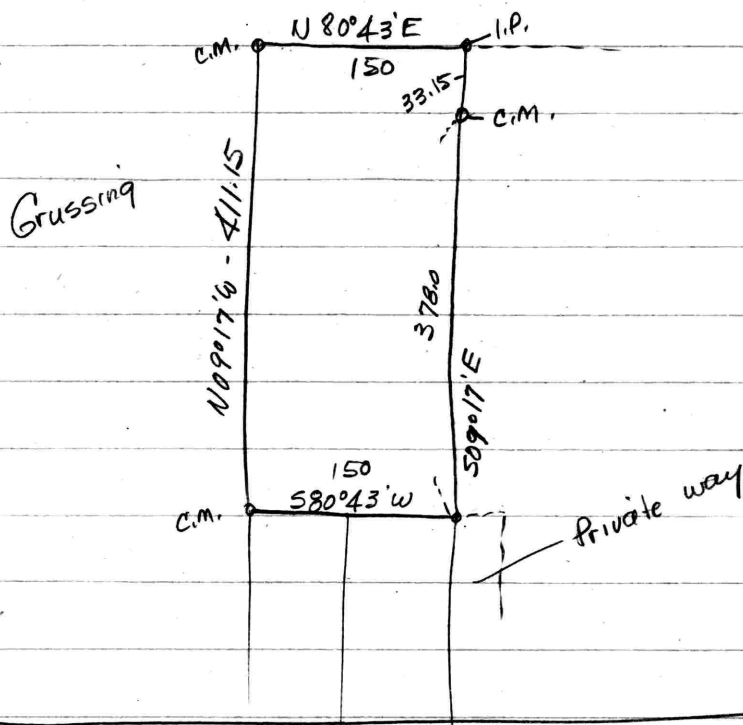 N 80°43'E
I.P.
C.M.
150
33.15
C.M.
Grussing
N09°17'W - 411.15
378.0
S09°17'E
150
S80°43'W
C.M.
Private way